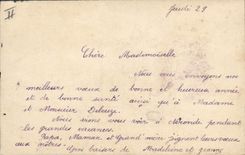 II
Jeudi 29
Chère Mademoiselle
Nous vous envoyons nos
meilleurs vœux de bonne et heureuse année
et de bonne santé ainsi qu'à Madame
et Monsieur Deleuze.
Nous irons vous voir à pendant
les grandes vacances.
Papa, Maman et Grand'mère joignent leurs vœux
aux nôtres.
Bons baisers de Madeleine et